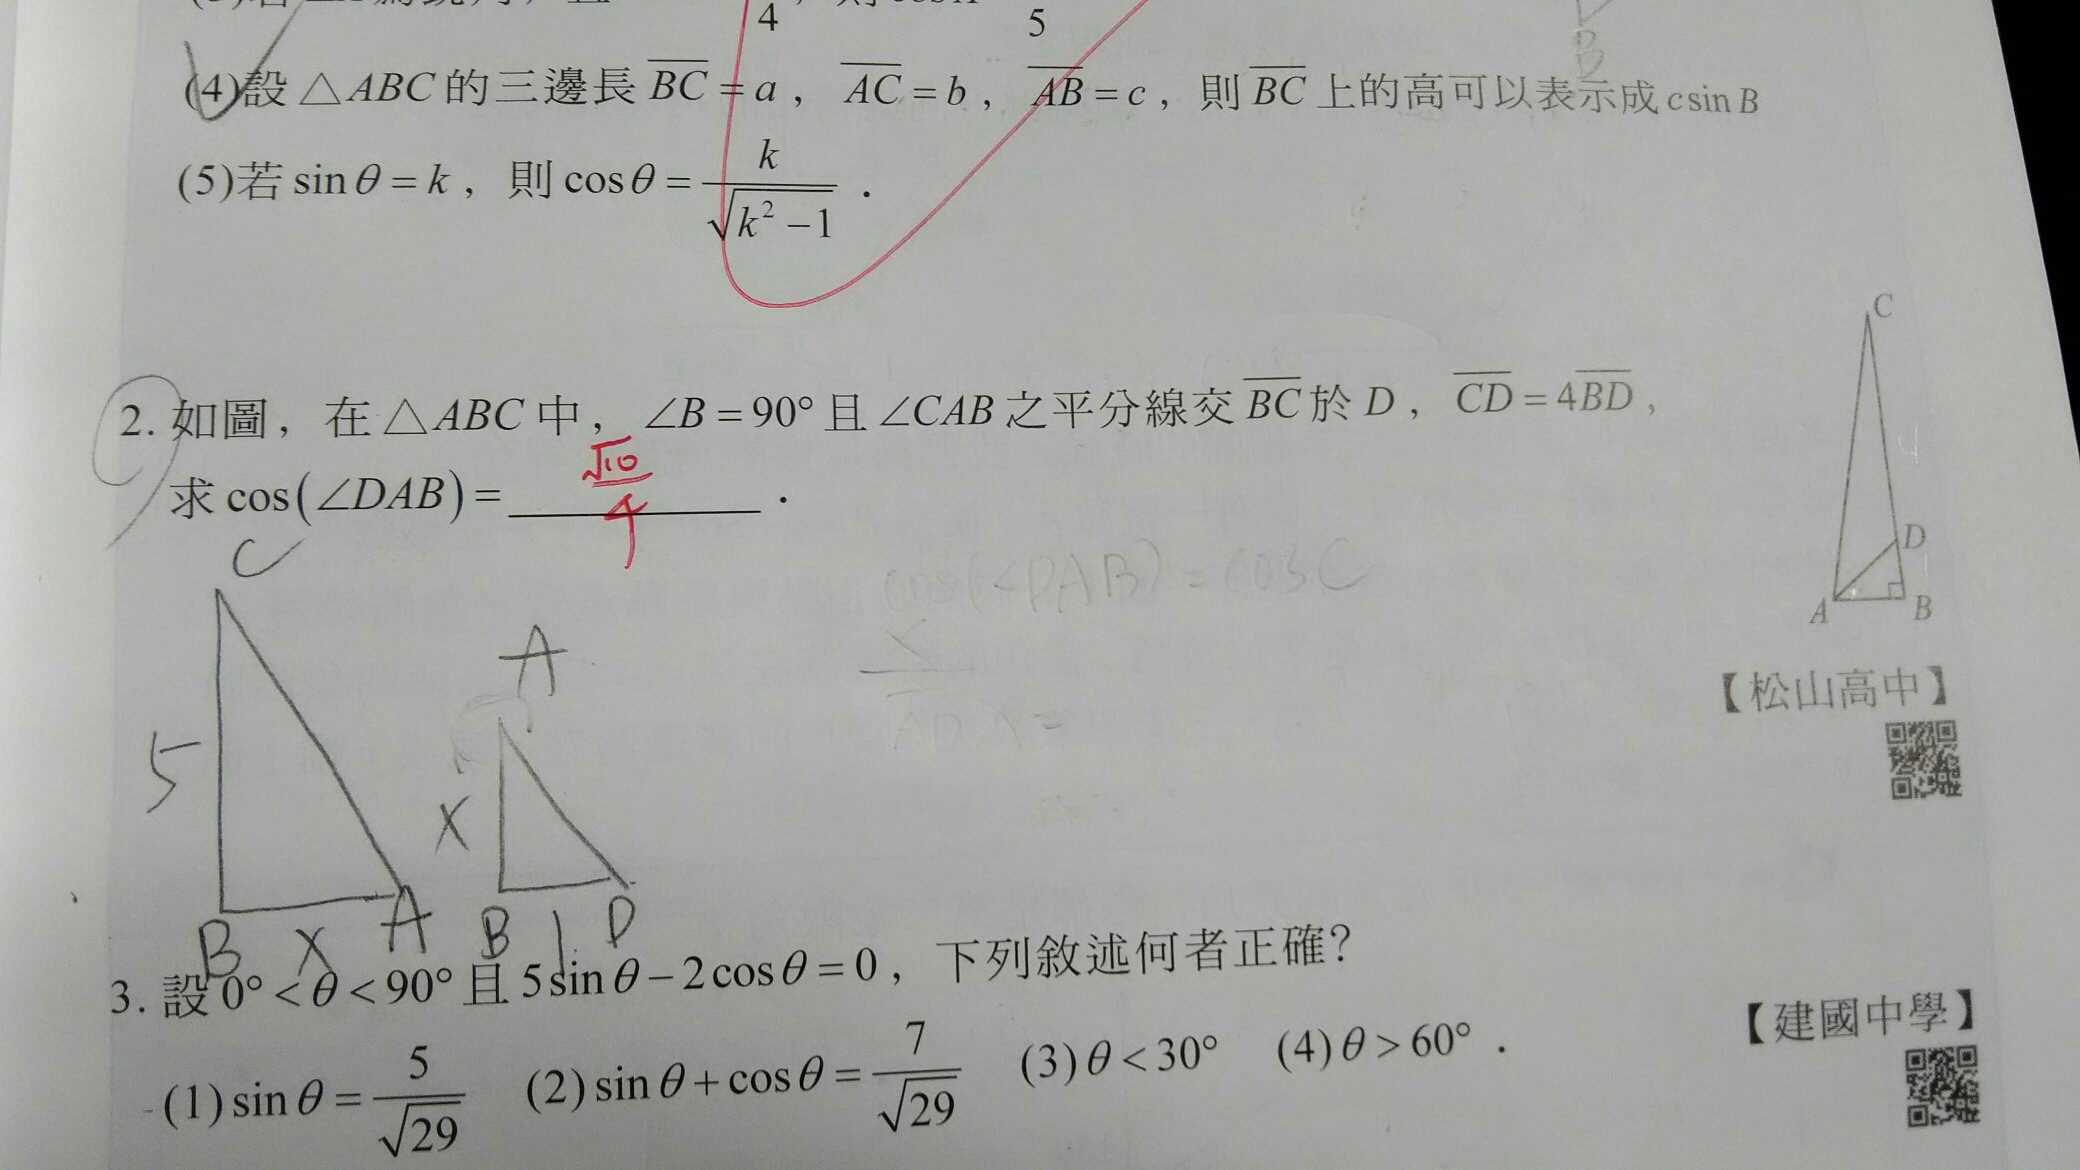 4 5
(4)設△ABC的三邊長 BC = a , AC = b , AB = c , 則 BC 上的高可以表示成 c sin B
(5)若 sin θ = k , 則 cos θ = k / √(k² − 1) .
2. 如圖, 在△ABC中, ∠B = 90° 且∠CAB之平分線交 BC 於 D , CD = 4BD ,
求 cos(∠DAB) = √10 / 4 .
C
D
A B
cos(∠DAB) = cos C
【松山高中】
C
5
B X A
A
X
B 1 D
3. 設 0° < θ < 90° 且 5 sin θ − 2 cos θ = 0 , 下列敘述何者正確?
【建國中學】
(1) sin θ = 5 / √29 (2) sin θ + cos θ = 7 / √29 (3) θ < 30° (4) θ > 60° .